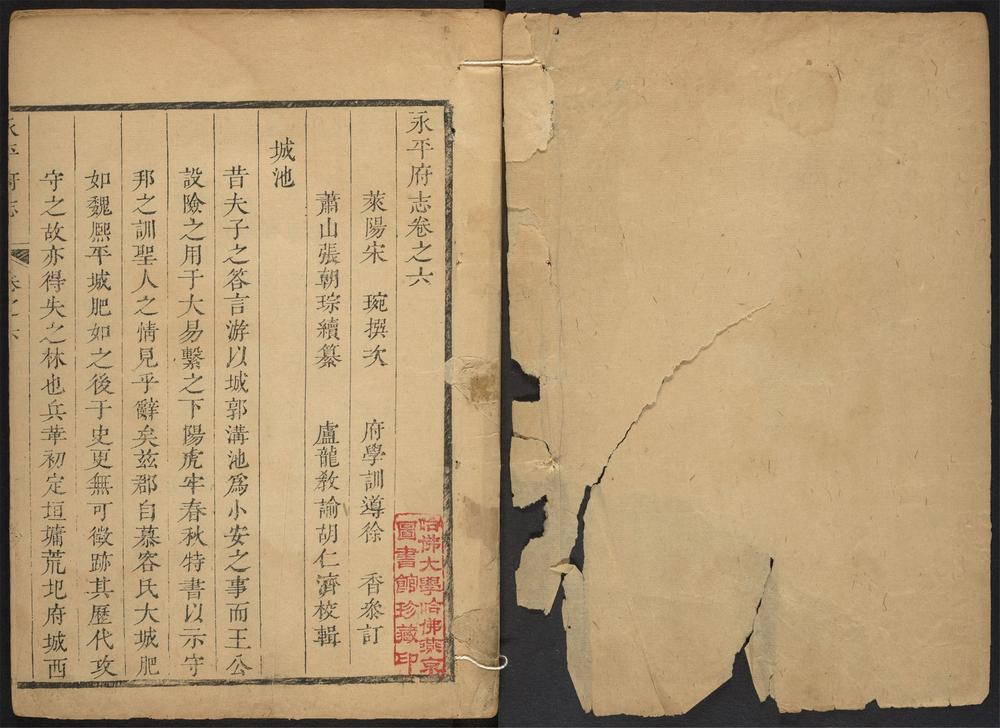 永平府志卷之六
萊陽宋　琬撰次　府學訓導徐　香叅訂
蕭山張朝琮續纂　盧龍教諭胡仁濟校輯
城池
昔夫子之答言游以城郭溝池爲小安之事而王公
設險之用于大易繫之下陽虎牢春秋特書以示守
邦之訓聖人之情見乎辭矣茲郡自慕容氏大城肥
如魏熈平城肥如之後于史更無可徵跡其歷代攻
守之故亦得失之林也兵革初定垣墉荒圮府城西
永平府志　卷之六
哈佛大學哈佛燕京
圖書館珍藏印